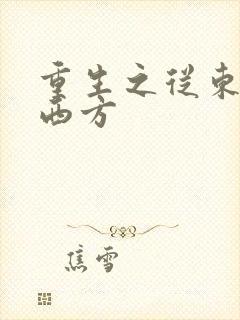 重生之从東
西方
焦雪